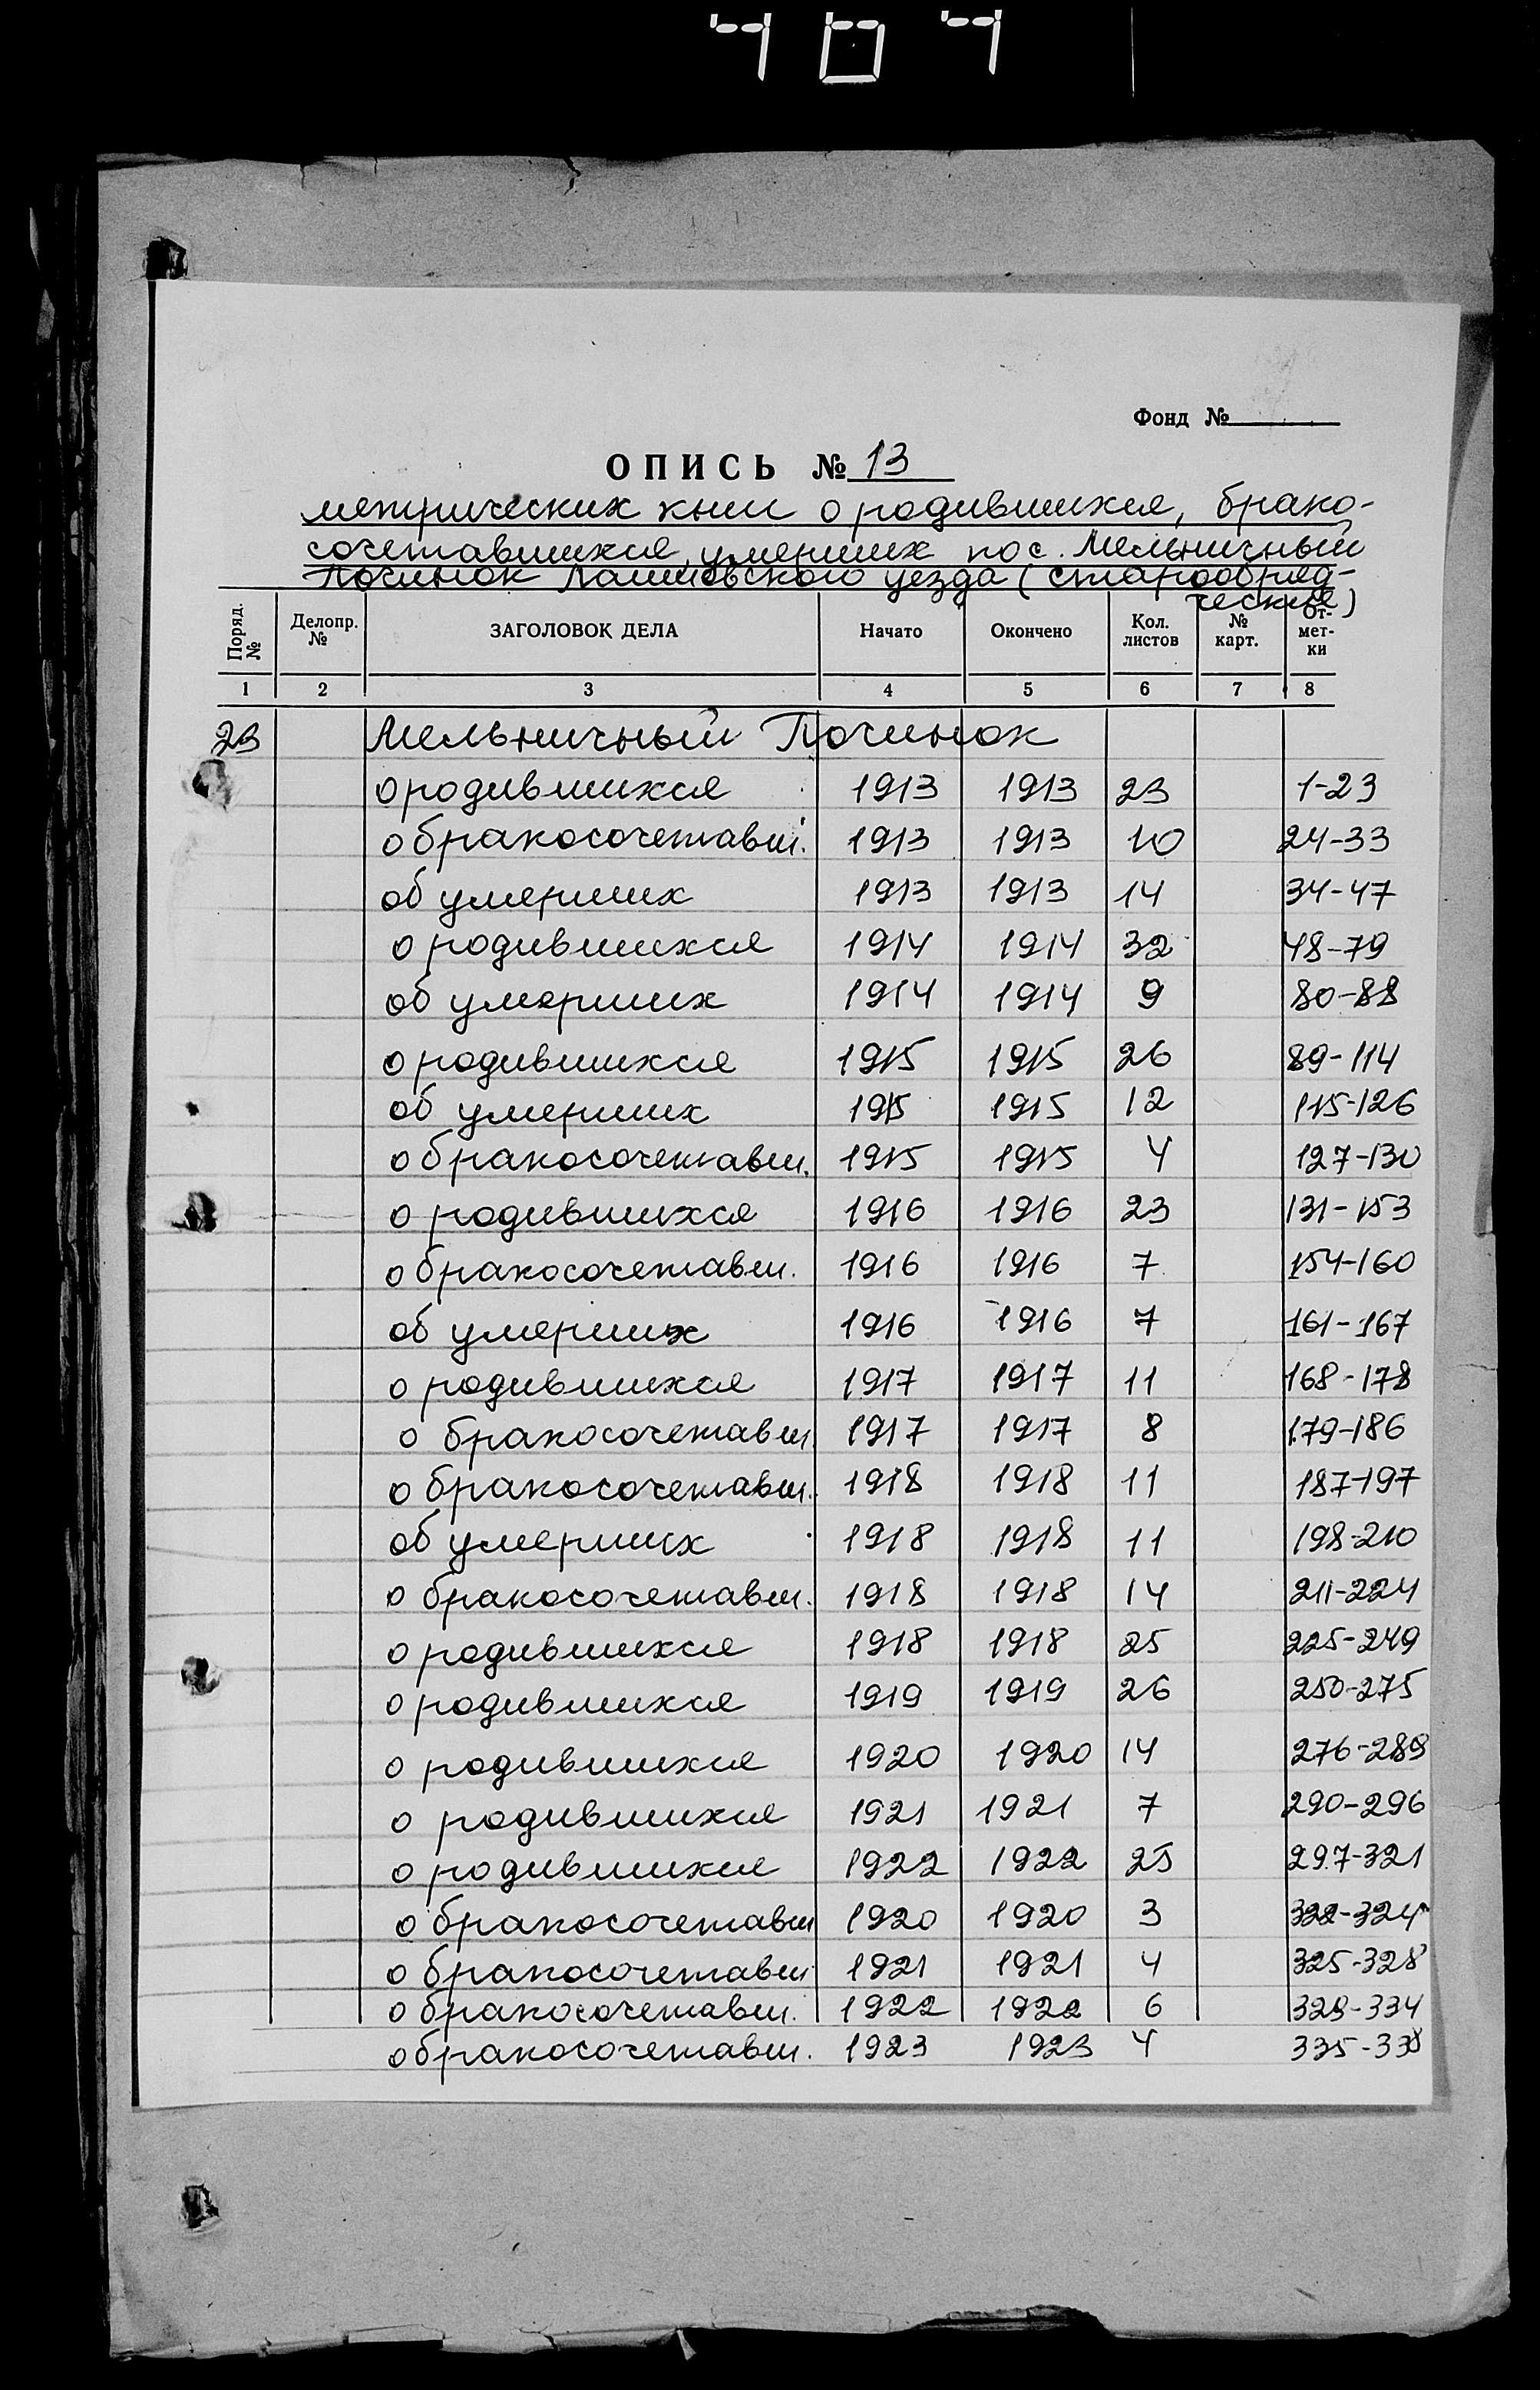 Фонд №
ОПИСЬ № 13
метрических книг о родившихся, брако-
сочетавшихся, умерших пос. Мельничный
Починок Лаишевского уезда (старообряд-
ческие)
Поряд. № Делопр. № ЗАГОЛОВОК ДЕЛА Начато Окончено Кол. листов № карт. От-мет-ки
1 2 3 4 5 6 7 8
23 Мельничный Починок
о родившихся 1913 1913 23 1-23
о бракосочетавш. 1913 1913 10 24-33
об умерших 1913 1913 14 34-47
о родившихся 1914 1914 32 48-79
об умерших 1914 1914 9 80-88
о родившихся 1915 1915 26 89-114
об умерших 1915 1915 12 115-126
о бракосочетавш. 1915 1915 4 127-130
о родившихся 1916 1916 23 131-153
о бракосочетавш. 1916 1916 7 154-160
об умерших 1916 1916 7 161-167
о родившихся 1917 1917 11 168-178
о бракосочетавш. 1917 1917 8 179-186
о бракосочетавш. 1918 1918 11 187-197
об умерших 1918 1918 11 198-210
о бракосочетавш. 1918 1918 14 211-224
о родившихся 1918 1918 25 225-249
о родившихся 1919 1919 26 250-275
о родившихся 1920 1920 14 276-289
о родившихся 1921 1921 7 290-296
о родившихся 1922 1922 25 297-321
о бракосочетавш 1920 1920 3 322-324
о бракосочетавш 1921 1921 4 325-328
о бракосочетавш. 1922 1922 6 329-334
о бракосочетавш. 1923 1923 4 335-338